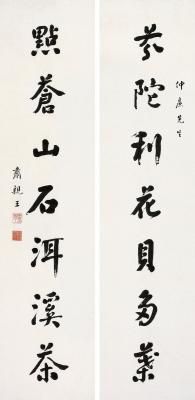 仲虞先生
芬陀利花貝多葉
點蒼山石洱溪茶
肅親王